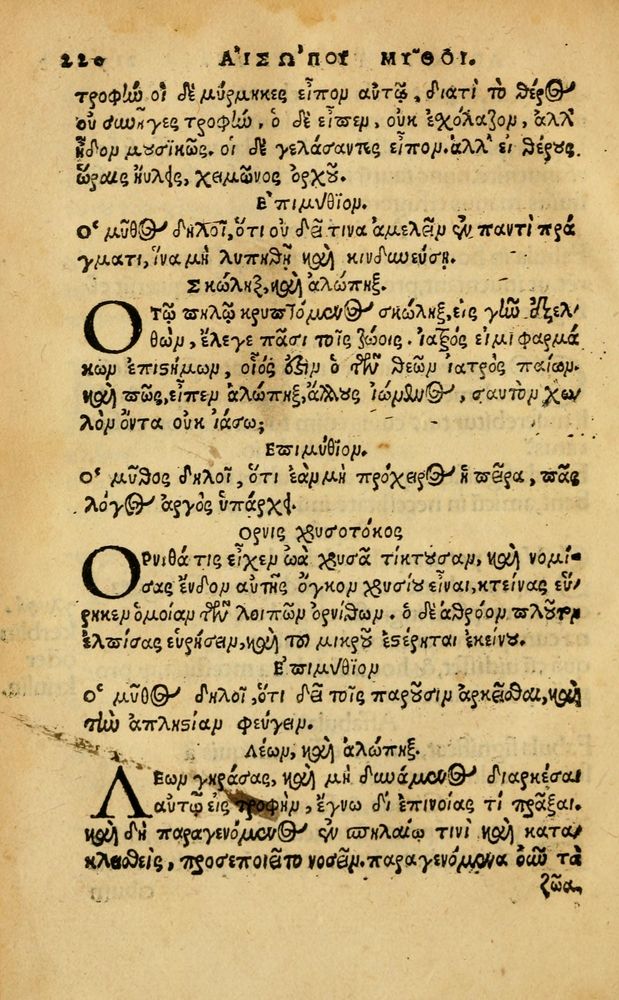 220 ΑἸΣΩΠΟΥ ΜΥ͂ΘΟΙ.
τροφὴν οἱ δὲ μύρμηκες εἶπον αὐτῷ, διατὶ τὸ θέρος
οὐ συνῆγες τροφὴν, ὁ δὲ εἶπεν, οὐκ ἐχόλαζον, ἀλλ'
ᾖδον μυσικῶς. οἱ δὲ γελάσαντες εἶπον. ἀλλ' εἰ θέρους
ὥραις ηὔλεις, χειμῶνος ὀρχοῦ.
Ἐπιμύθιον.
Ὁ μῦθος δηλοῖ, ὅτι οὐ δεῖ τινα ἀμελεῖν ἐν παντὶ πρά
γματι, ἵνα μὴ λυπηθῇ καὶ κινδυνεύσῃ.
Σκώληξ, καὶ ἀλώπηξ.
Ὁ τῷ πηλῷ κρυπτόμενος σκώληξ, εἰς γῆν ἐξελ
θὼν, ἔλεγε πᾶσι τοῖς ζώοις. ἰατρός εἰμι φαρμά
κων ἐπιστήμων, οἷός ἐστιν ὁ τῶν θεῶν ἰατρὸς παίων.
καὶ πῶς, εἶπεν ἀλώπηξ, ἄλλους ἰώμενος, σαυτὸν χω
λὸν ὄντα οὐκ ἰάσω;
Ἐπιμύθιον.
Ὁ μῦθος δηλοῖ, ὅτι ἐὰν μὴ πρόχειρος ἡ πεῖρα, πᾶς
λόγος ἀργὸς ὑπάρχει.
Ὄρνις χρυσοτόκος
Ὄρνιθά τις εἶχεν ὠὰ χρυσᾶ τίκτουσαν, καὶ νομί-
σας ἔνδον αὐτῆς ὄγκον χρυσίου εἶναι, κτείνας εὕ-
ρηκεν ὁμοίαν τῶν λοιπῶν ὀρνίθων. ὁ δὲ ἀθρόον πλοῦτον
ἐλπίσας εὑρήσειν, καὶ τοῦ μικροῦ ἐστέρηται ἐκείνου.
Ἐπιμύθιον
Ὁ μῦθος δηλοῖ, ὅτι δεῖ τοῖς παροῦσιν ἀρκεῖσθαι, καὶ
τὴν ἀπληστίαν φεύγειν.
Λέων, καὶ ἀλώπηξ.
Λέων γηράσας, καὶ μὴ δυνάμενος διαρκέσαι
αὑτῷ εἰς τροφὴν, ἔγνω δι ἐπινοίας τί πρᾶξαι.
καὶ δὴ παραγενόμενος ἐν σπηλαίῳ τινὶ καὶ κατα
κλεισθεὶς, προσεποιεῖτο νοσεῖν. παραγενόμενα οὖν τὰ
ζῶα,